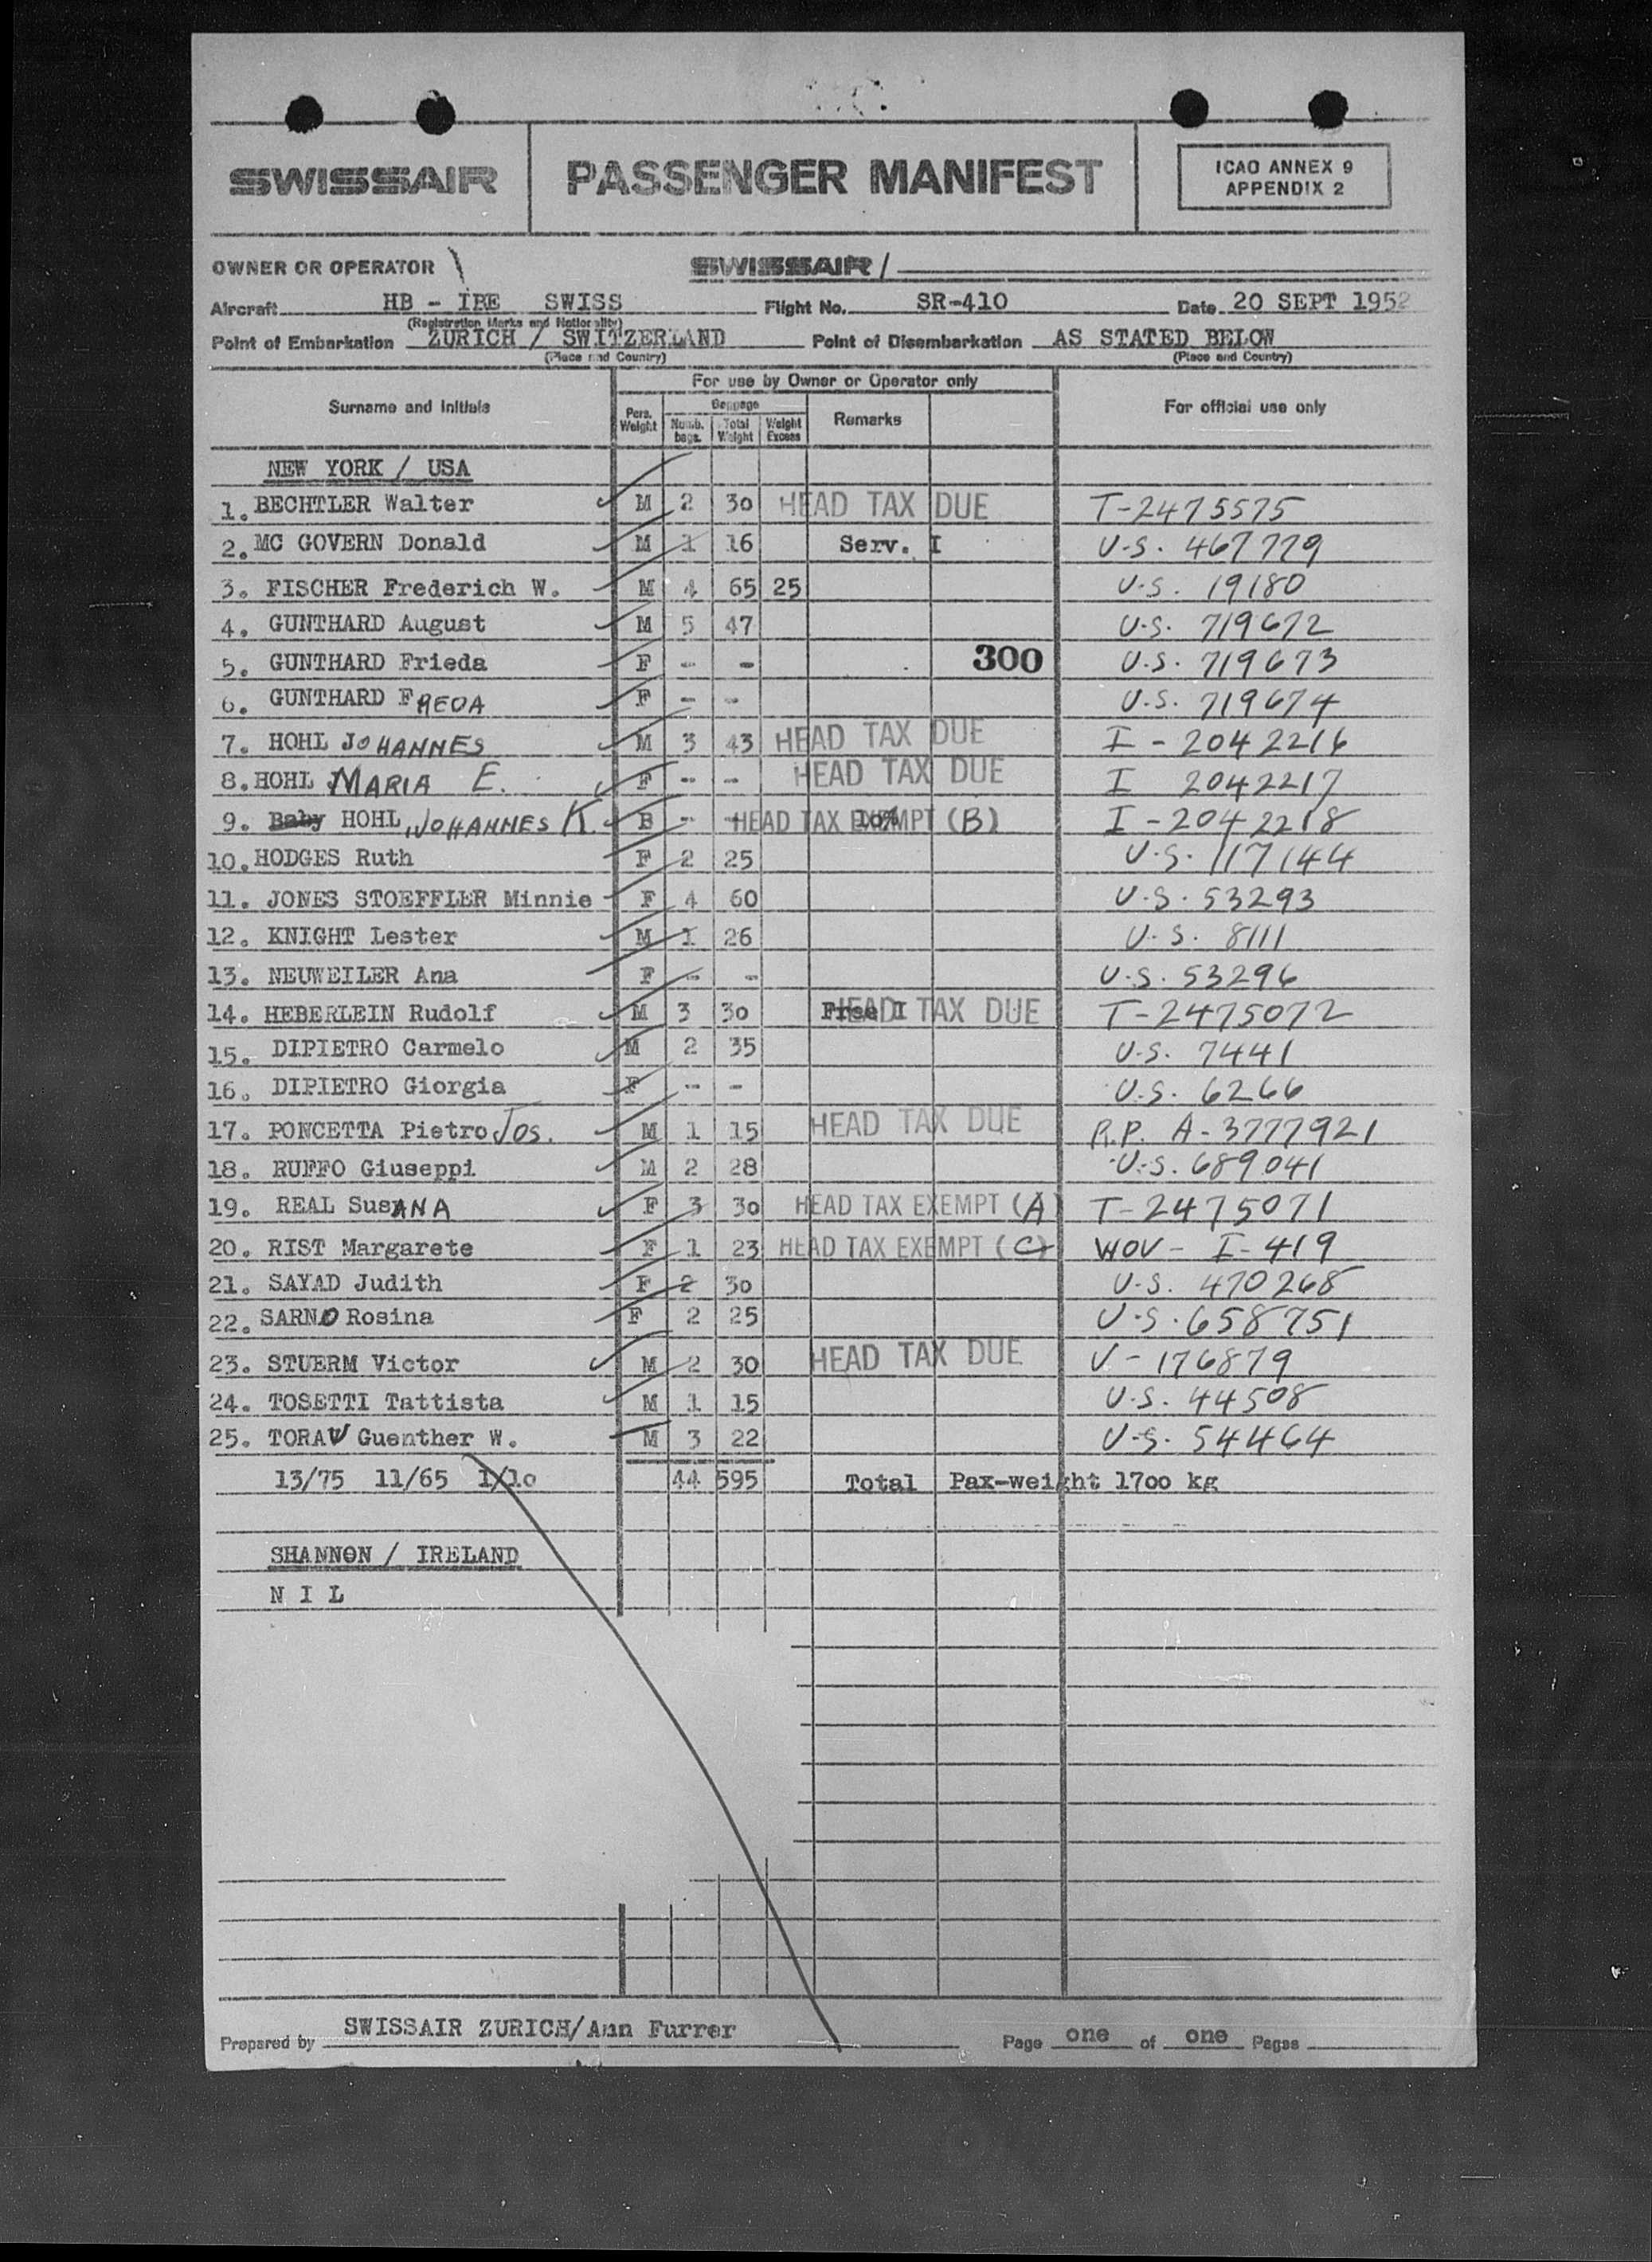 SWISSAIR PASSENGER MANIFEST ICAO ANNEX 9
APPENDIX 2
OWNER OR OPERATOR SWISSAIR /
Aircraft HB - IBE SWISS Flight No. SR-410 Date 20 SEPT 1952
(Registration Marks and Nationality)
Point of Embarkation ZURICH / SWITZERLAND Point of Disembarkation AS STATED BELOW
(Place and Country) (Place and Country)
For use by Owner or Operator only
Surname and Initials Pers. Weight Baggage Numb. bags. Total Weight Weight Excess Remarks For official use only
NEW YORK / USA
1. BECHTLER Walter M 2 30 HEAD TAX DUE T-2475575
2. MC GOVERN Donald M 1 16 Serv. I U.S. 467779
3. FISCHER Frederich W. M 4 65 25 U.S. 19180
4. GUNTHARD August M 5 47 U.S. 719672
5. GUNTHARD Frieda F - - 300 U.S. 719673
6. GUNTHARD FREDA F - - U.S. 719674
7. HOHL JOHANNES M 3 43 HEAD TAX DUE I - 2042216
8. HOHL MARIA E. F - - HEAD TAX DUE I 2042217
9. Baby HOHL, JOHANNES K. B - - HEAD TAX EXEMPT (B) 10% I - 2042218
10. HODGES Ruth F 2 25 U.S. 117144
11. JONES STOEFFLER Minnie F 4 60 U.S. 53293
12. KNIGHT Lester M 1 26 U.S. 8111
13. NEUWEILER Ana F - - U.S. 53296
14. HEBERLEIN Rudolf M 3 30 Free I HEAD TAX DUE T-2475072
15. DIPIETRO Carmelo M 2 35 U.S. 7441
16. DIPIETRO Giorgia F - - U.S. 6266
17. PONCETTA Pietro Jos. M 1 15 HEAD TAX DUE R.P. A-3777921
18. RUFFO Giuseppi M 2 28 U.S. 689041
19. REAL SusANA F 3 30 HEAD TAX EXEMPT (A) T-2475071
20. RIST Margarete F 1 23 HEAD TAX EXEMPT (C) WOV - I-419
21. SAYAD Judith F 2 30 U.S. 470268
22. SARNO Rosina F 2 25 U.S. 658751
23. STUERM Victor M 2 30 HEAD TAX DUE V - 176879
24. TOSETTI Tattista M 1 15 U.S. 44508
25. TORAU Guenther W. M 3 22 U.S. 54464
13/75 11/65 1/10 44 595 Total Pax-weight 1700 kg
SHANNON / IRELAND
N I L
Prepared by SWISSAIR ZURICH/Ann Furrer Page one of one Pages